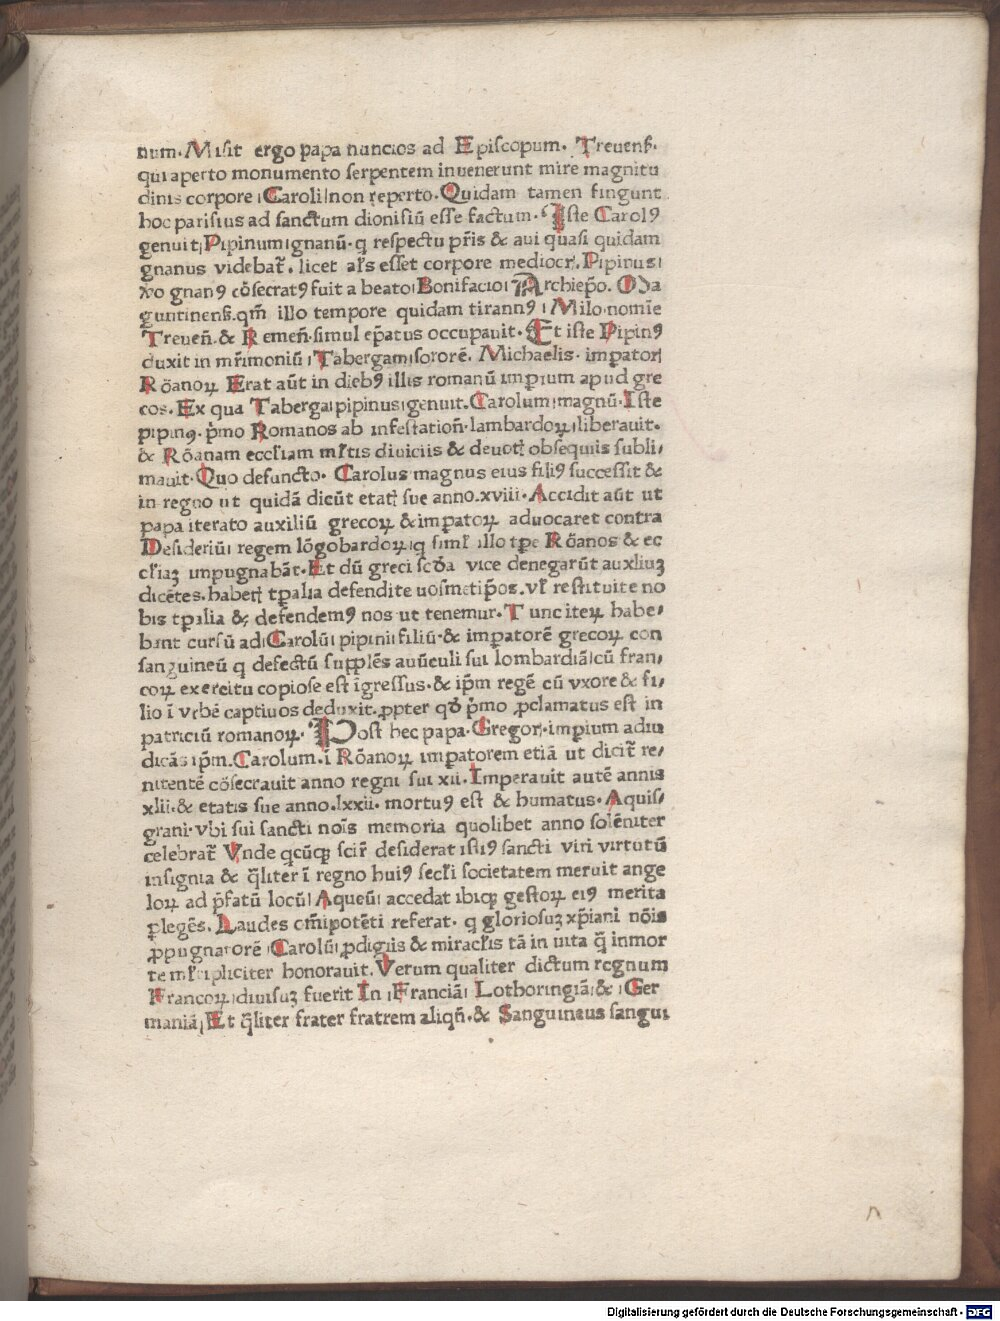 num. Misit ergo papa nuncios ad Episcopum. Treuenß.
qui aperto monumento serpentem inuenerunt mire magnitu
dinis corpore Caroli non reperto. Quidam tamen fingunt
hoc parisius ad sanctum dionisiū esse factum. Iste Carolꝰ
genuit Pipinum gnanū. q respectu pr̄is & aui quasi quidam
gnanus videbat̄. licet al̄s esset corpore mediocr̄. Pipinus
v̊o gnanꝰ cōsecratꝰ fuit a beato Bonifacio Archiep̄o. Ma
guntinenß. qm̄ illo tempore quidam tirannꝰ Milo nomīe
Treueñ. & Remeñ. simul ep̄atus occupauit. Et iste Pipinꝰ
duxit in mr̄imoniū Tabergam sororē. Michaelis. impatorꝭ
Rōanoꝝ Erat aūt in diebꝰ illis romanū imꝑium apud gre
cos. Ex qua Taberga pipinus genuit. Carolum magnū. Iste
pipinꝰ. pͥmo Romanos ab infestatioñ lambardoꝝ liberauit.
& Rōanam eccl̄iam ml̄tis diuiciis & deuotꝭ obsequiis subli/
mauit. Quo defuncto. Carolus magnus eius filiꝰ successit &
in regno ut quidā dicūt etatꝭ sue anno. xviii. Accidit aūt ut
papa iterato auxiliū grecoꝝ & imꝑatoꝝ aduocaret contra
Desideriū regem lōgobardoꝝ q siml̄ illo tꝑe Rōanos & ec
cl̄iaꝫ impugnabāt. Et dū greci scd̄a vice denegarūt auxliuꝫ
dicētes. habetꝭ tꝑalia defendite uosmetip̄os. vl̄ restituite no
bis tꝑalia & defendemꝰ nos ut tenemur. Tunc iteꝝ habe/
bant cursū ad Carolū pipini filiū & imꝑatorē grecoꝝ con
sanguineū q defectū supplēs auūculi sui lombardiā cū fran/
coꝝ exercitu copiose est īgressus. & ip̄m regē cū vxore & fi/
lio ī vrbē captiuos deduxit. ꝓpter qd̄ pͥmo ꝓclamatus est in
patriciū romanoꝝ. Post hec papa. Gregorꝭ. imꝑium adiu
dicās ip̄m. Carolum. ī Rōanoꝝ imꝑatorem etiā ut dicit̄ re/
nitentē cōsecrauit anno regni sui xii. Imperauit autē annis
xlii. & etatis sue anno. lxxii. mortuꝰ est & humatus. Aquis/
grani. vbi sui sancti nois̄ memoria quolibet anno solēniter
celebrat̄ Vnde qcūqꝫ scir̄ desiderat istiꝰ sancti viri virtutū
insignia & q̄liter ī regno huiꝰ secl̄i societatem meruit ange
loꝝ ad p̄fatū locū Aqueū accedat ibiqꝫ gestoꝝ eiꝰ merita
ꝑlegēs. Laudes om̄ipotēti referat. q gloriosuꝫ xp̄iani nōis
ꝓpugnatorē Carolū ꝓdigiis & miracl̄is tā in uita q̄ in mor
te ml̄tipliciter honorauit. Verum qualiter dictum regnum
Francoꝝ diuisuꝫ fuerit In Franciā Lothoringiā & Ger
maniā Et q̄liter frater fratrem aliqñ. & Sanguineus sangui
Digitalisierung gefördert durch die Deutsche Forschungsgemeinschaft - DFG